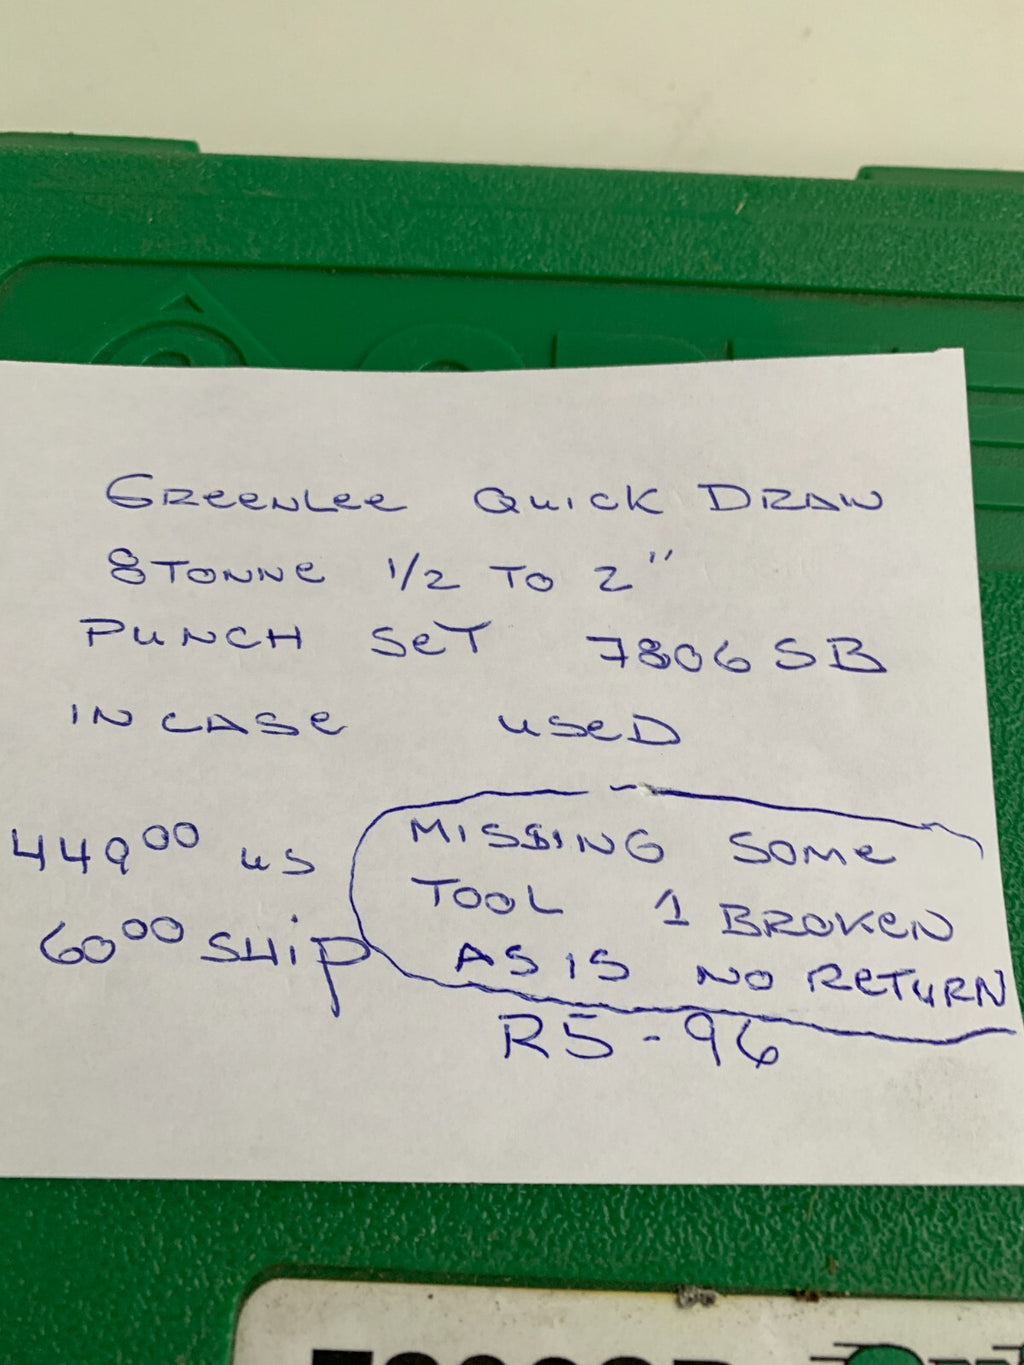 GREENLEE QUICK DRAW
8 TONNE 1/2 TO 2"
PUNCH SET 7806 SB
IN CASE USED
449⁰⁰ US
60⁰⁰ SHIP
MISSING SOME
TOOL 1 BROKEN
AS IS NO RETURN
R5-96